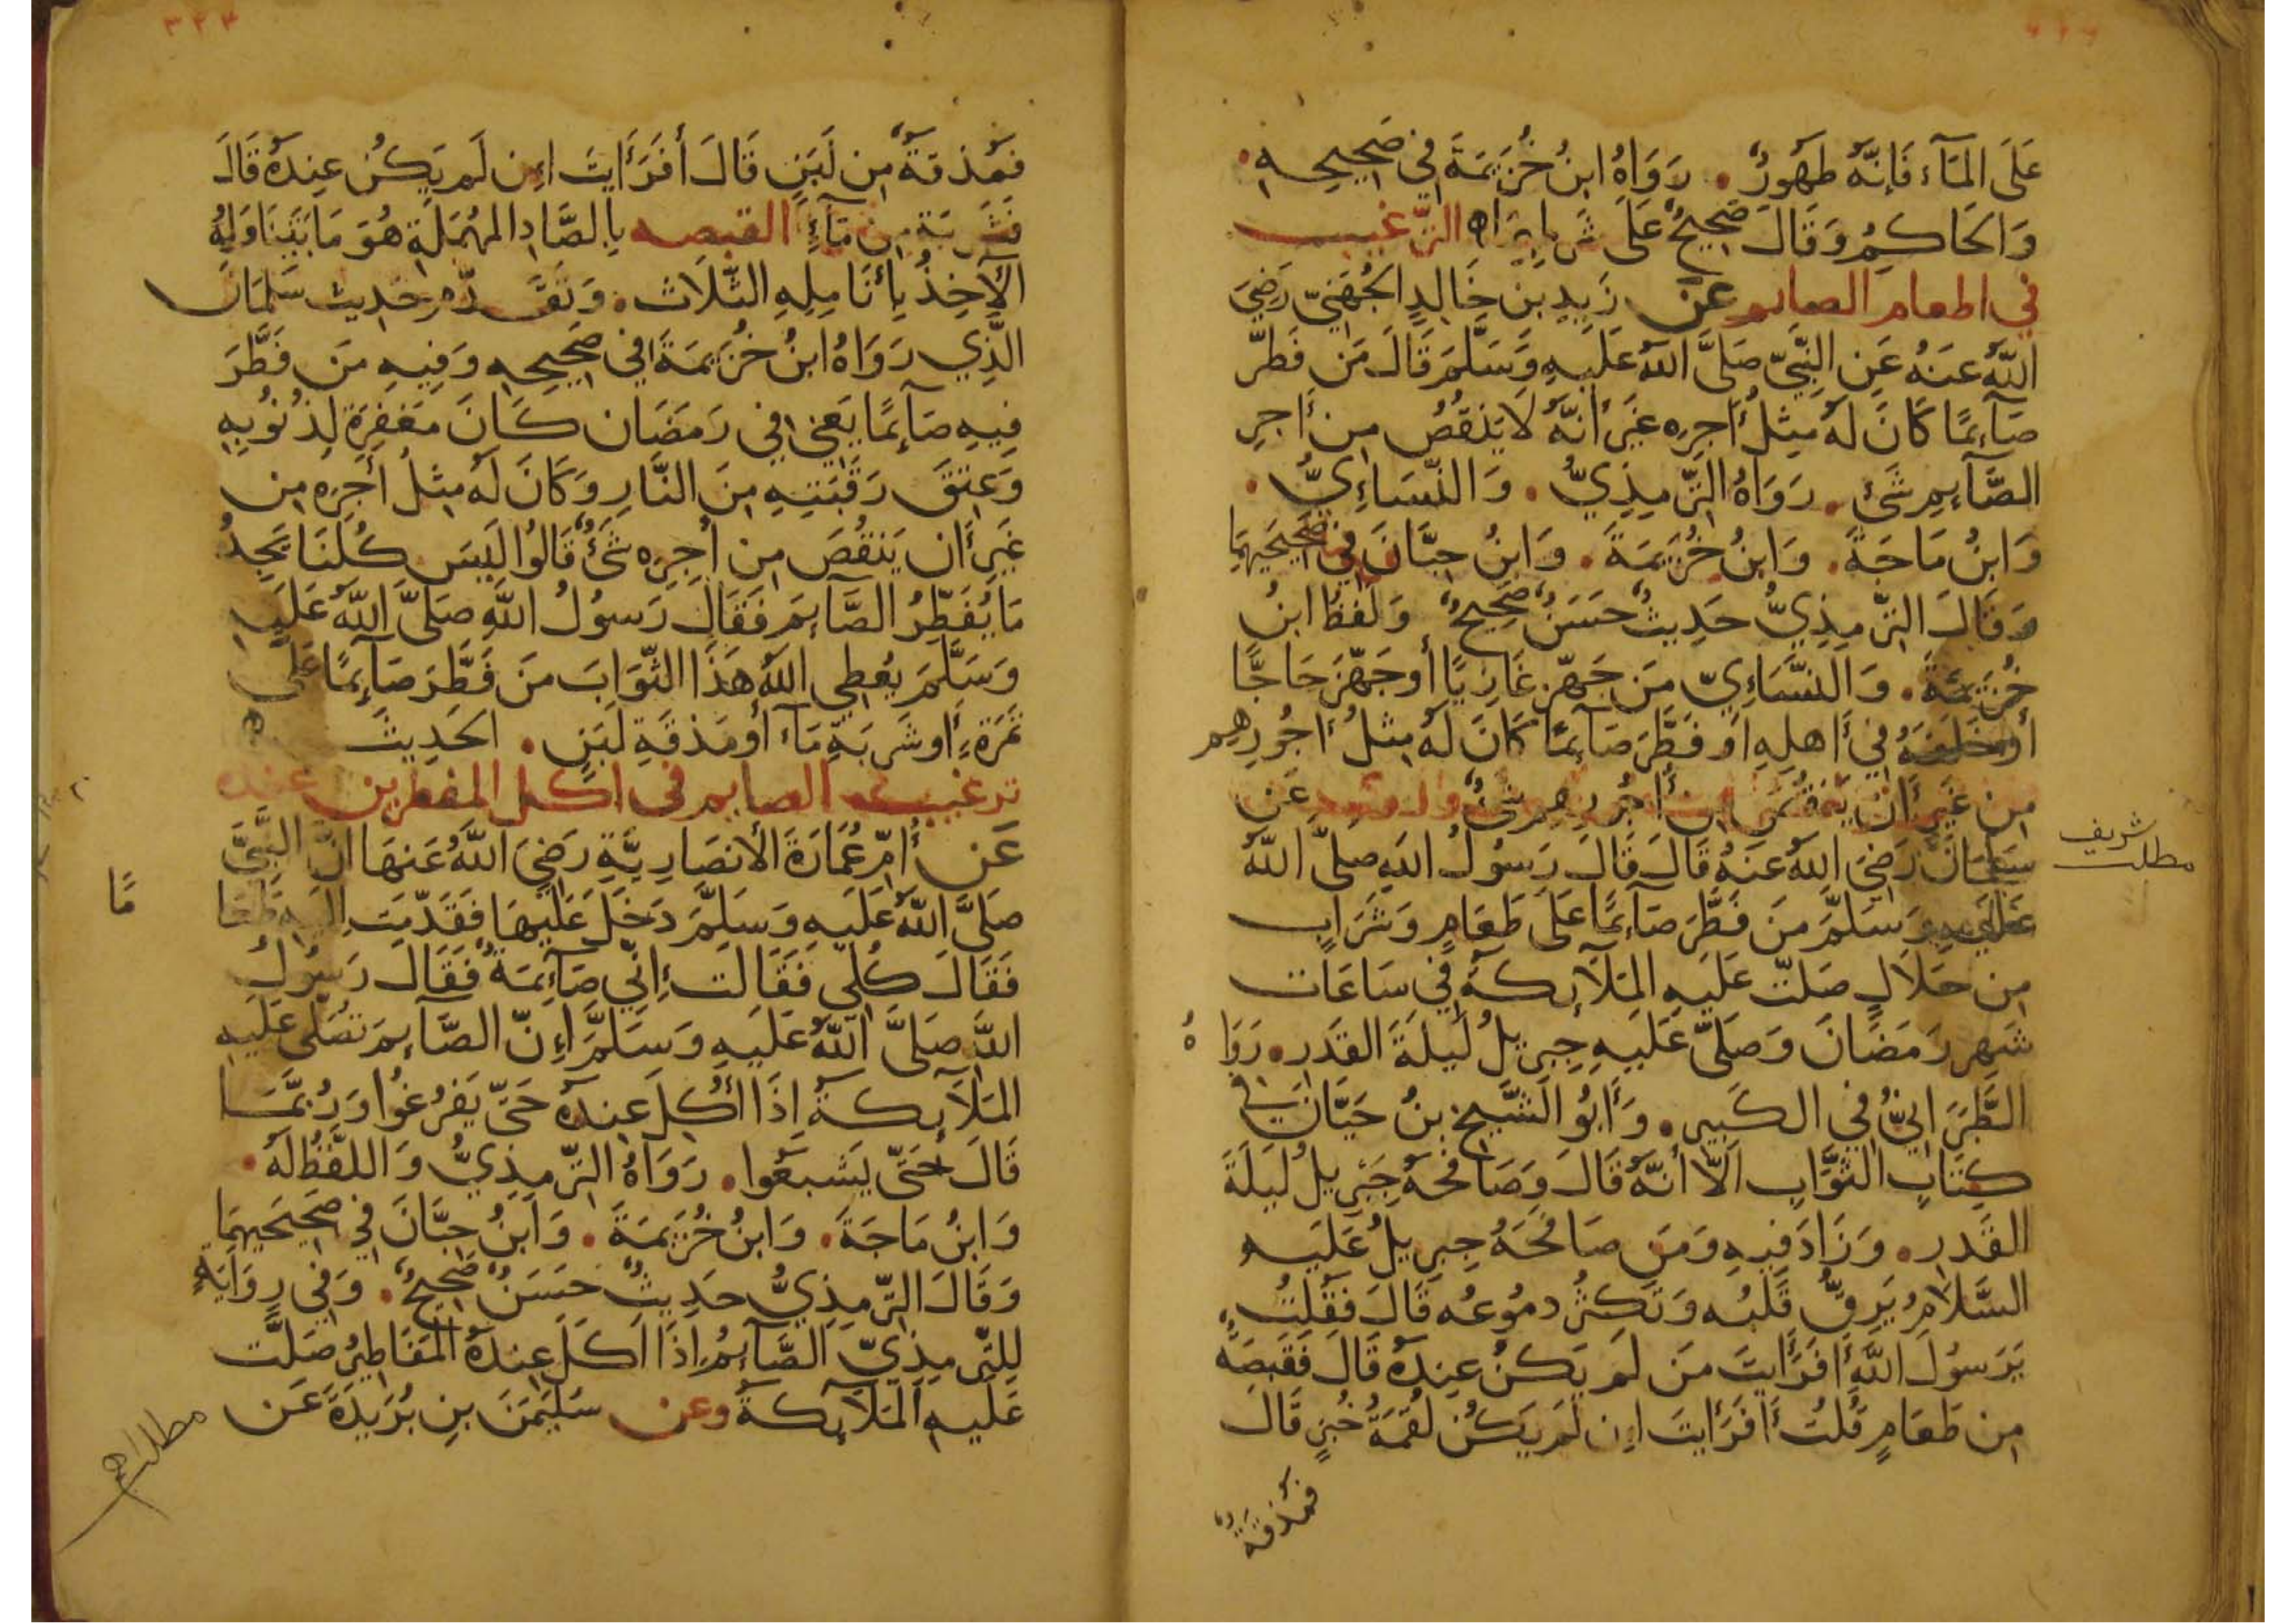 عَلَى المَآءِ فَإِنَّهُ طَهُورٌ. رَوَاهُ ابنُ خُزَيمَةَ فِي صَحِيحِهِ.
وَالحَاكِمُ وَقَالَ صَحِيحٌ عَلَى شَرطِهِمَا الترغيب
في اطعام الصايم عَن زَيدِ بنِ خَالِدٍ الجُهَنِيِّ رَضِيَ
اللَّهُ عَنهُ عَنِ النَّبِيِّ صَلَّى اللَّهُ عَلَيهِ وَسَلَّمَ قَالَ مَن فَطَّرَ
صَآئِمًا كَانَ لَهُ مِثلُ أَجرِهِ غَيرَ أَنَّهُ لَا يَنقُصُ مِن أَجرِ
الصَّآئِمِ شَئٌ. رَوَاهُ التِّرمِذِيُّ. وَالنَّسَاءِيُّ.
وَابنُ مَاجَةَ. وَابنُ خُزَيمَةَ. وَابنُ حِبَّانَ فِي صَحِيحَيهِمَا
وَقَالَ التِّرمِذِيُّ حَدِيثٌ حَسَنٌ صَحِيحٌ وَلَفظُ ابنُ
خُزَيمَةَ. وَالنَّسَاءِيِّ مَن جَهَّزَ غَازِيًا أَو جَهَّزَ حَاجًّا
أَو خَلَفَهُ فِي أَهلِهِ أَو فَطَّرَ صَآئِمًا كَانَ لَهُ مِثلُ أُجُورِهِم
مِن غَيرِ أَن يَنقُصَ مِن أُجُورِهِم شَئٌ عَن
سَلمَانَ رَضِيَ اللَّهُ عَنهُ قَالَ قَالَ رَسُولُ اللَّهِ صَلَّى اللَّهُ
عَلَيهِ وَسَلَّمَ مَن فَطَّرَ صَآئِمًا عَلَى طَعَامٍ وَشَرَابٍ
مِن حَلَالٍ صَلَّت عَلَيهِ المَلَآئِكَةُ فِي سَاعَاتِ
شَهرِ رَمَضَانَ وَصَلَّى عَلَيهِ جِبرِيلُ لَيلَةَ القَدرِ. رَوَاهُ
الطَّبَرَانِيُّ فِي الكَبِيرِ. وَأَبُو الشَّيخِ بنُ حَيَّانَ فِي
كِتَابِ الثَّوَابِ اَلَّا أَنَّهُ قَالَ وَصَافَحَهُ جِبرِيلُ لَيلَةَ
القَدرِ. وَزَادَ فِيهِ وَمَن صَافَحَهُ جِبرِيلُ عَلَيهِ
السَّلَامُ يَرِقُّ قَلبُه وَتَكثُرُ دمُوعُه قَالَ فَقُلتُ
يَرَسُولَ اللَّهِ أَفَرَأَيتَ مَن لَم يَكُن عِندَهُ قَالَ فَقَبصَةٌ
مِن طَعَامٍ قُلتُ أَفَرَأَيتَ اِن لَم يَكُن لُقمَةُ خُبزٍ قَالَ
فَمَذقَةٌ
مطلب شريف
٣٣٣
فَمَذقَةٌ مِن لَبَنٍ قَالَ أَفَرَأَيتَ اِن لَم يَكُن عِندَهُ قَالَ
فَشَربَة مِن مَآءٍ القبصه بِالصَّادِ المُهمَلَةِ هُوَ مَا يَتَنَاوَلُهُ
الآخِذُ بِأَنَامِلِهِ الثَّلَاث. وَتَقَدَّمَ حَدِيثُ سَلمَانَ
الَّذِي رَوَاهُ ابنُ خُزَيمَةَ فِي صَحِيحِهِ وَفِيهِ مَن فَطَّرَ
فِيهِ صَآئِمًا يَعنِي فِي رَمَضَان كَانَ مَغفِرَة لِذُنُوبِهِ
وَعِتقَ رَقَبَتِهِ مِنَ النَّارِ وَكَانَ لَهُ مِثلُ أَجرِهِ مِن
غَيرِ أَن يَنقُصَ مِن أَجرِهِ شَئٌ قَالُوا لَيسَ كُلُّنَا يَجِدُ
مَا يُفَطِّرُ الصَّآئِمَ فَقَالَ رَسُولُ اللَّهِ صَلَّى اللَّهُ عَلَيهِ
وَسَلَّمَ يُعطِي اللَّهُ هَذَا الثَّوَابَ مَن فَطَّرَ صَآئِمًا عَلَى
تَمرَةٍ أَو شَربَةِ مَآء أَو مَذقَةِ لَبَنٍ. الحَدِيثَ
ترغيب الصايم في اكل المفطرين عنده
عَن أُمِّ عُمَارَةَ الأَنصَارِيَّةِ رَضِيَ اللَّهُ عَنهَا أَنَّ النَّبِيَّ
صَلَّى اللَّهُ عَلَيهِ وَسَلَّمَ دَخَلَ عَلَيهَا فَقَدَّمَت اِلَيهِ طَعَامًا
فَقَالَ كُلِي فَقَالَت إِنِّي صَآئِمَةٌ فَقَالَ رَسُولُ
اللَّهِ صَلَّى اللَّهُ عَلَيهِ وَسَلَّمَ إِنَّ الصَّآئِمَ تُصَلِّي عَلَيهِ
المَلَآئِكَةُ اِذَا أُكِلَ عِندَهُ حَتَّى يَفرُغُوا وَرُبَّمَا
قَالَ حَتَّى يَشبَعُوا. رَوَاهُ التِّرمِذِيُّ وَاللَّفظُ لَهُ.
وَابنُ مَاجَةَ. وَابنُ خُزَيمَةَ. وَابنُ حِبَّانَ فِي صَحِيحَيهِمَا
وَقَالَ التِّرمِذِيُّ حَدِيثٌ حَسَنٌ صَحِيحٌ. وَفِي رِوَايَةٍ
لِلتِّرمِذِيِّ الصَّآئِمُ اِذَا اَكَلَ عِندَهُ المَفَاطِيرُ صَلَّت
عَلَيهِ المَلَآئِكَةُ وعن سُلَيمَنَ بنِ بُرَيدَةَ عَن
مطلب